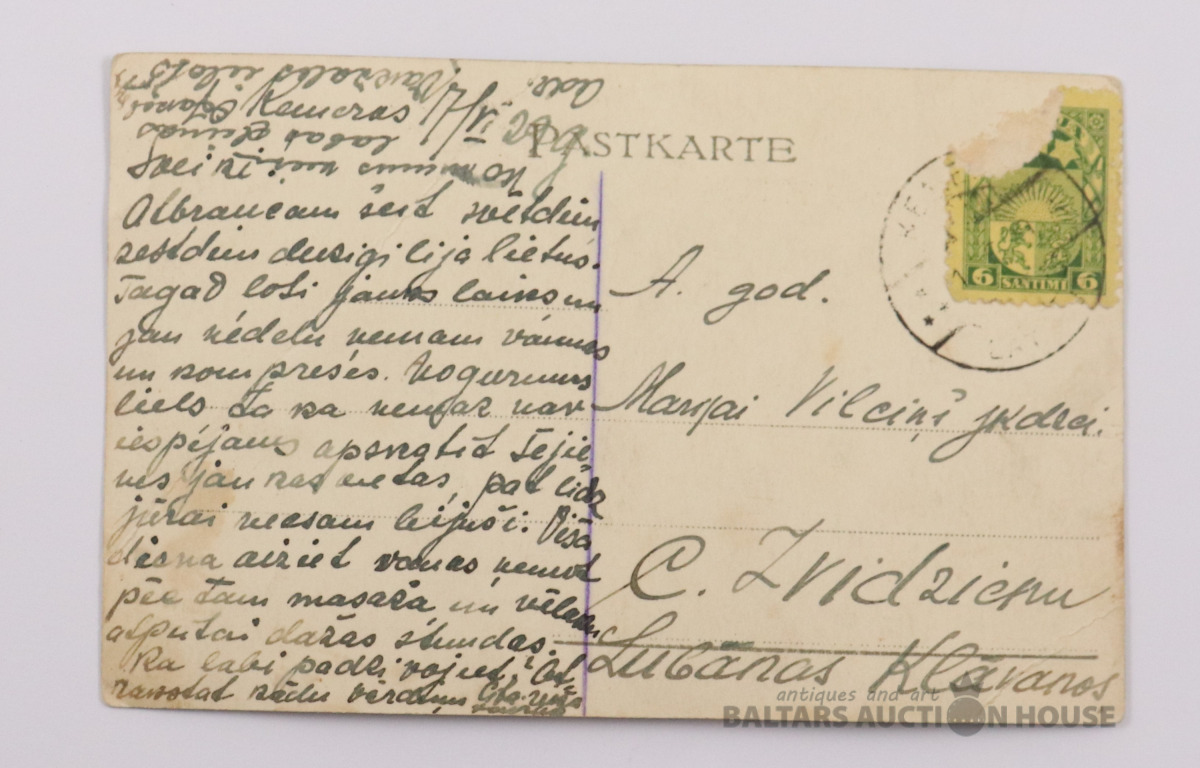 Kemeros VI
PASTKARTE
Albraucam šeit svētdien
sestdien dusigi lija lietus.
Tagad loti jauks laiks un
jau nēdelu nemam vannas
un kompreses. Nogurums
liels ta ka nemaz nav
iespējams apskatit Tejie
nes jaukas vietas, pat lidz
jūrai neesam bijuši. Visa
diena aiziet vanas nemot
pēc tam masaža un vēlaku
atputai dažas stundas.
Ka labi padzivojiet,
rakstat kādu vārdiņu
A. god.
Marijai Vilciņš jkdzei.
C. Zvidzienu
Lubānas Klāvanos
6 SANTIMI 6
antiques and art
BALTARS AUCTION HOUSE